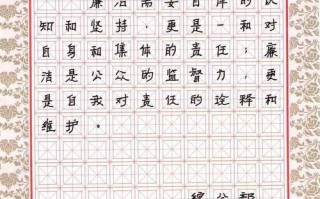 廉洁需要自律的认
知和坚持，更是一和对
自身和集体的责任；廉
洁是公众的监督力，更
是自我对责任的诠释和
维护。
综合部